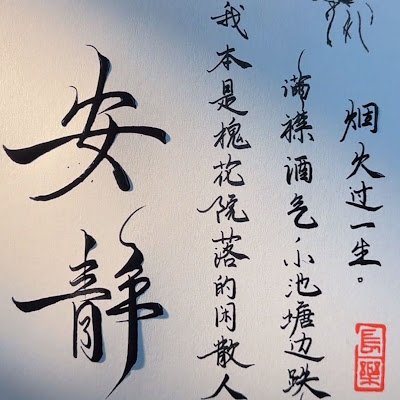 安静
我本是槐花院落的闲散人
满襟酒气，小池塘边跌
烟火过一生。
長樂